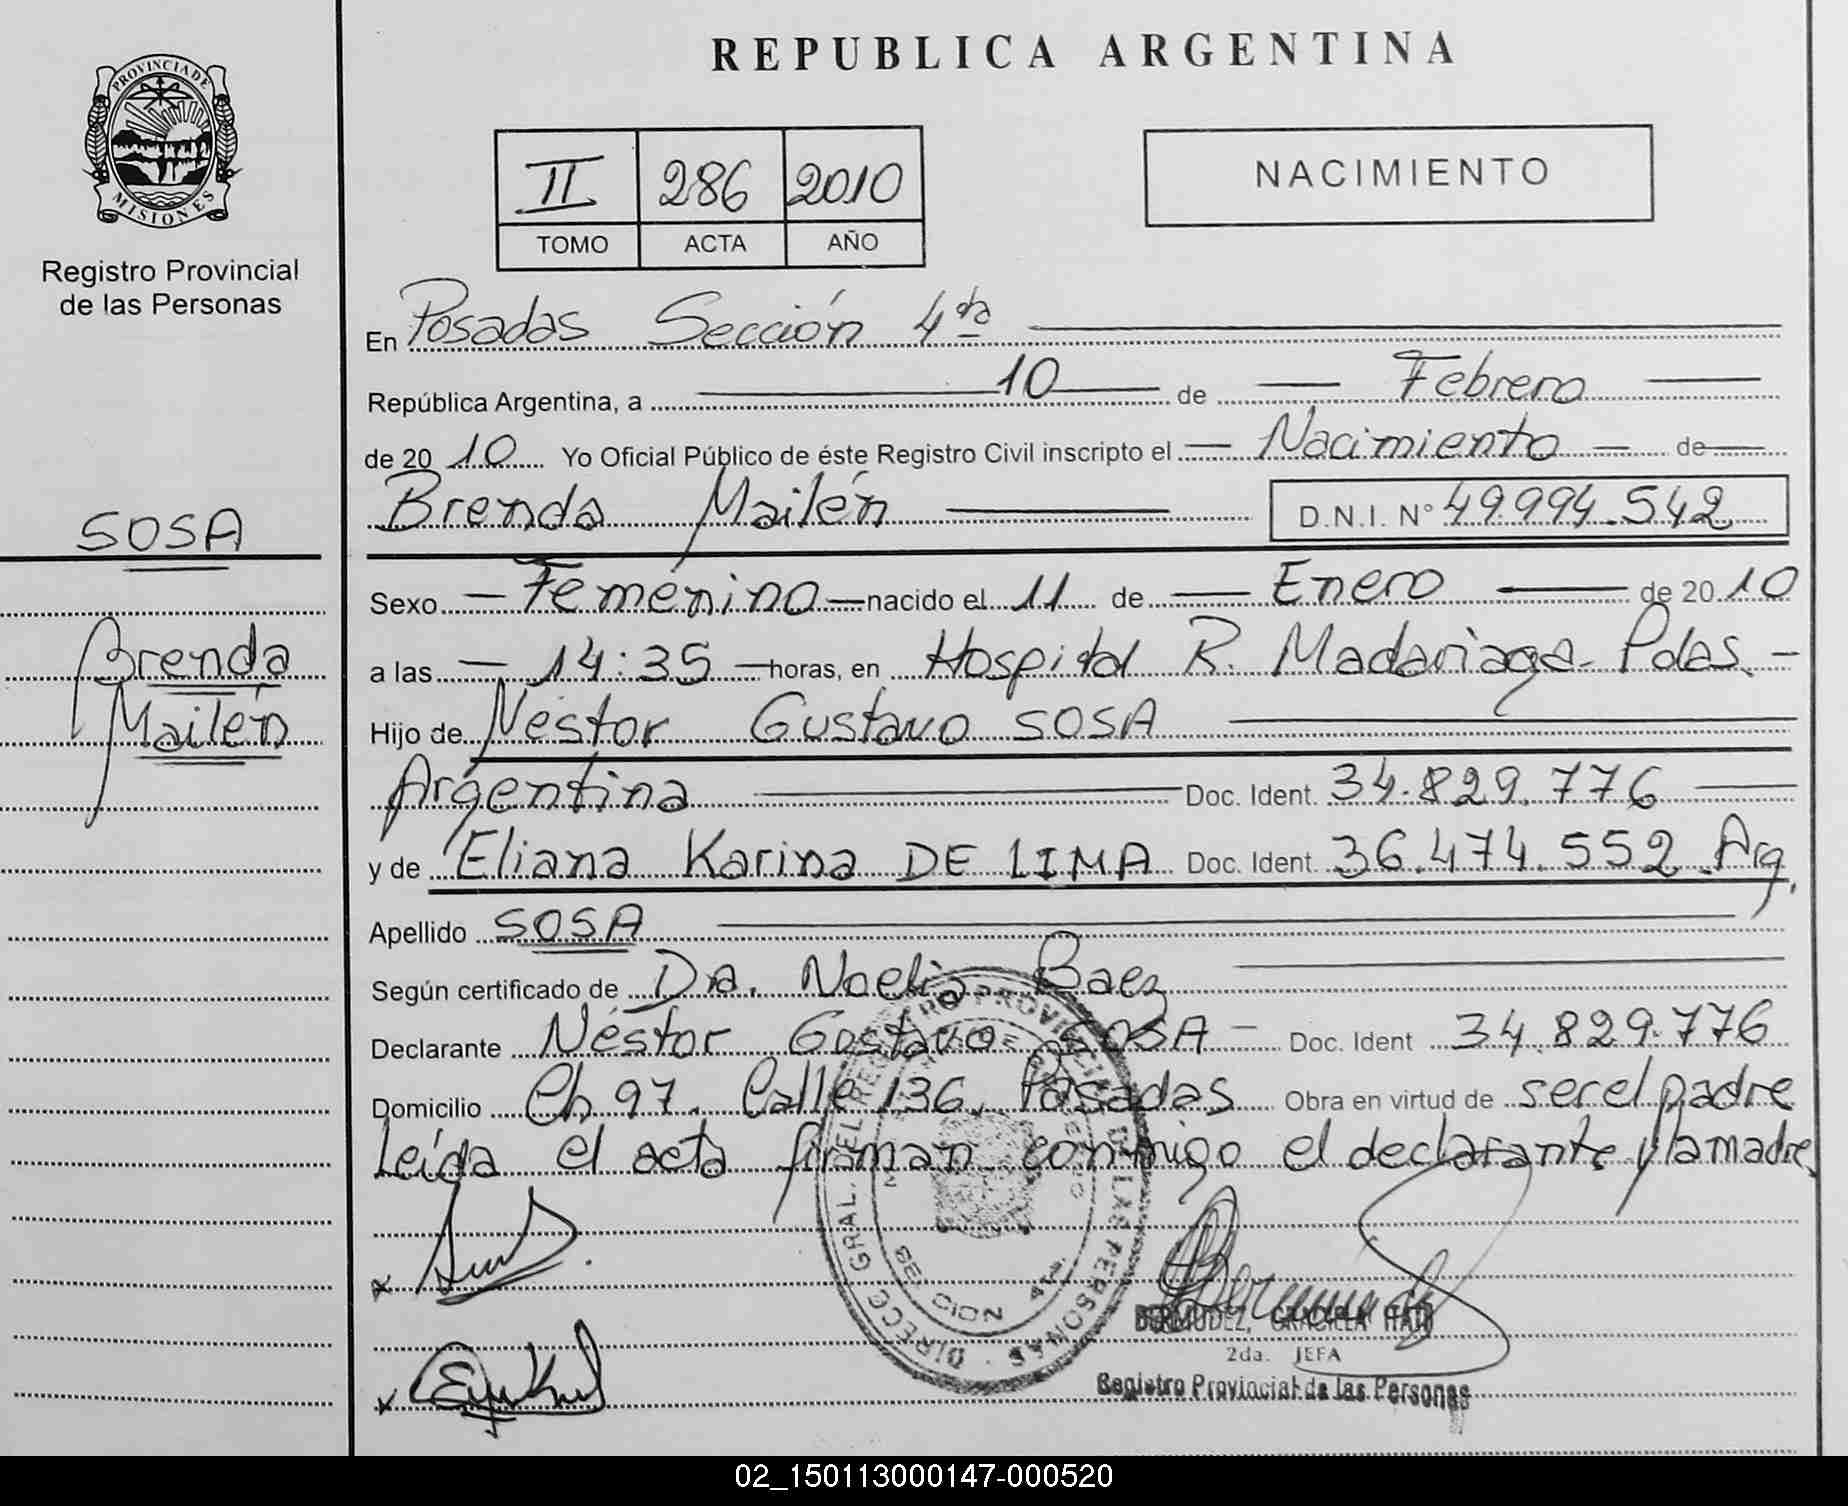 REPUBLICA ARGENTINA
PROVINCIA DE
MISIONES
Registro Provincial
de las Personas
II 286 2010
TOMO ACTA AÑO
NACIMIENTO
En Posadas Sección 4ta
República Argentina, a 10 de Febrero
de 2010 Yo Oficial Público de éste Registro Civil inscripto el Nacimiento de
Brenda Mailén D.N.I. N° 49.994.542
SOSA
Sexo Femenino nacido el 11 de Enero de 2010
Brenda
Mailén
a las 14:35 horas, en Hospital R. Madariaga- Pdas.-
Hijo de Néstor Gustavo SOSA
Argentina Doc. Ident. 34.829.776
y de Eliana Karina DE LIMA Doc. Ident. 36.474.552 Arg.
Apellido SOSA
Según certificado de Dra. Noelia Baez
Declarante Néstor Gustavo SOSA - Doc. Ident 34.829.776
Domicilio Ch 97. Calle 136, Posadas Obra en virtud de ser el padre
Leída el acta firman conmigo el declarante y la madre,
DIRECC. GRAL. DEL REGISTRO PROVINCIAL DE LAS PERSONAS
SECCION 4ta.
BERMUDEZ, GRACIELA ITATI
2da. JEFA
Registro Provincial de las Personas
02_150113000147-000520